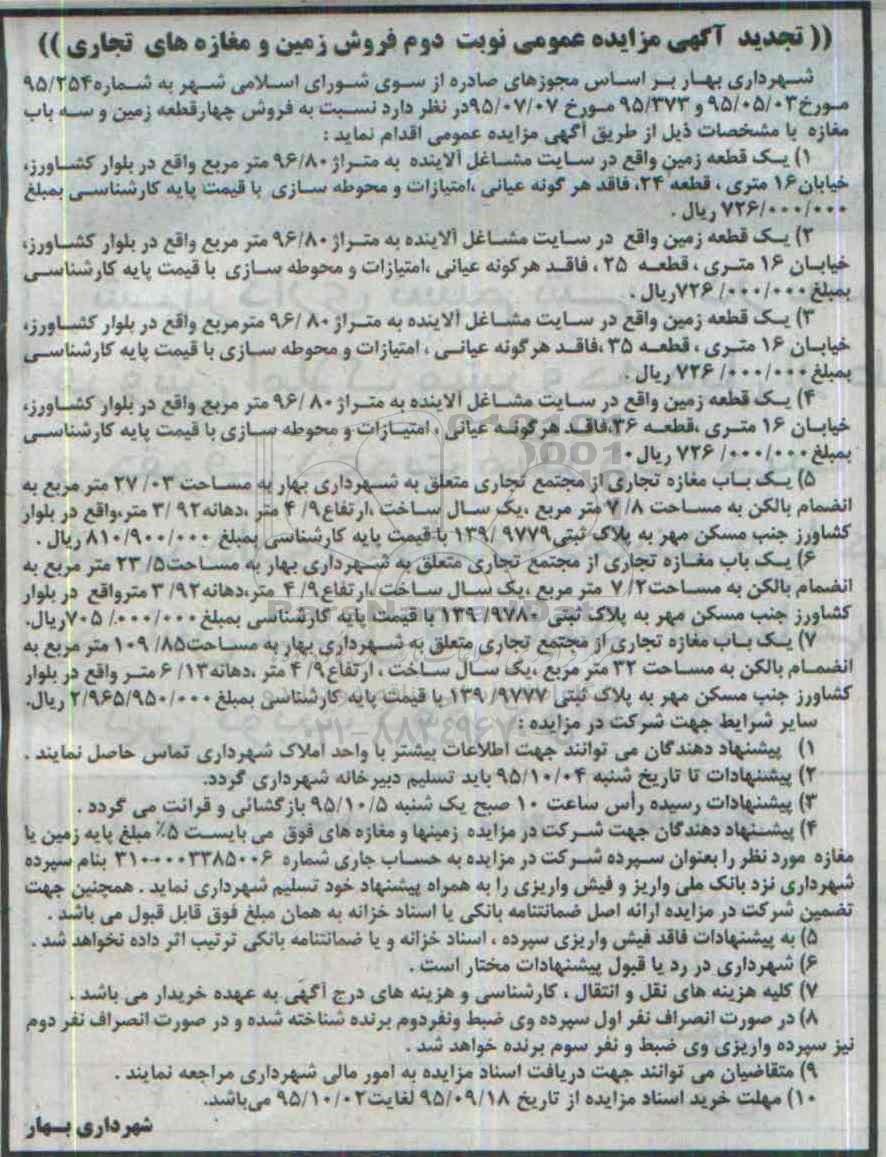 (( تجدید آگهی مزایده عمومی نوبت دوم فروش زمین و مغازه های تجاری ))
شهرداری بهار بر اساس مجوزهای صادره از سوی شورای اسلامی شهر به شماره ۹۵/۲۵۴
مورخ ۹۵/۰۵/۰۳ و ۹۵/۳۷۳ مورخ ۹۵/۰۷/۰۷ در نظر دارد نسبت به فروش چهارقطعه زمین و سه باب
مغازه با مشخصات ذیل از طریق آگهی مزایده عمومی اقدام نماید :
۱) یک قطعه زمین واقع در سایت مشاغل آلاینده به متراژ ۹۶/۸۰ متر مربع واقع در بلوار کشاورز،
خیابان ۱۶ متری ، قطعه ۲۴، فاقد هر گونه عیانی ،امتیازات و محوطه سازی با قیمت پایه کارشناسی بمبلغ
۷۲۶/۰۰۰/۰۰۰ ریال .
۲) یک قطعه زمین واقع در سایت مشاغل آلاینده به متراژ ۹۶/۸۰ متر مربع واقع در بلوار کشاورز،
خیابان ۱۶ متری ، قطعه ۲۵ ، فاقد هرگونه عیانی ،امتیازات و محوطه سازی با قیمت پایه کارشناسی
بمبلغ ۷۲۶/۰۰۰/۰۰۰ ریال .
۳) یک قطعه زمین واقع در سایت مشاغل آلاینده به متراژ ۹۶/۸۰ مترمربع واقع در بلوار کشاورز،
خیابان ۱۶ متری ، قطعه ۳۵ ،فاقد هرگونه عیانی ، امتیازات و محوطه سازی با قیمت پایه کارشناسی
بمبلغ ۷۲۶/۰۰۰/۰۰۰ ریال .
۴) یک قطعه زمین واقع در سایت مشاغل آلاینده به متراژ ۹۶/۸۰ متر مربع واقع در بلوار کشاورز،
خیابان ۱۶ متری ،قطعه ۳۶،فاقد هرگونه عیانی ، امتیازات و محوطه سازی با قیمت پایه کارشناسی
بمبلغ ۷۲۶/۰۰۰/۰۰۰ ریال .
۵) یک باب مغازه تجاری از مجتمع تجاری متعلق به شهرداری بهار به مساحت ۲۷/۰۳ متر مربع به
انضمام بالکن به مساحت ۷/۸ متر مربع ،یک سال ساخت ،ارتفاع ۴/۹ متر ،دهانه ۳/۹۲ متر،واقع در بلوار
کشاورز جنب مسکن مهر به پلاک ثبتی ۱۳۹/۹۷۷۹ با قیمت پایه کارشناسی بمبلغ ۸۱۰/۹۰۰/۰۰۰ ریال .
۶) یک باب مغازه تجاری از مجتمع تجاری متعلق به شهرداری بهار به مساحت ۲۳/۵ متر مربع به
انضمام بالکن به مساحت ۷/۲ متر مربع ،یک سال ساخت ،ارتفاع ۴/۹ متر،دهانه ۳/۹۲ مترواقع در بلوار
کشاورز جنب مسکن مهر به پلاک ثبتی ۱۳۹/۹۷۸۰ با قیمت پایه کارشناسی بمبلغ ۷۰۵/۰۰۰/۰۰۰ ریال.
۷) یک باب مغازه تجاری از مجتمع تجاری متعلق به شهرداری بهار به مساحت ۱۰۹/۸۵ متر مربع به
انضمام بالکن به مساحت ۳۲ متر مربع ،یک سال ساخت ، ارتفاع ۴/۹ متر ،دهانه ۶/۱۳ متر واقع در بلوار
کشاورز جنب مسکن مهر به پلاک ثبتی ۱۳۹/۹۷۷۷ با قیمت پایه کارشناسی بمبلغ ۲/۹۶۵/۹۵۰/۰۰۰ ریال.
سایر شرایط جهت شرکت در مزایده :
۱) پیشنهاد دهندگان می توانند جهت اطلاعات بیشتر با واحد املاک شهرداری تماس حاصل نمایند .
۲) پیشنهادات تا تاریخ شنبه ۹۵/۱۰/۰۴ باید تسلیم دبیرخانه شهرداری گردد.
۳) پیشنهادات رسیده رأس ساعت ۱۰ صبح یک شنبه ۹۵/۱۰/۵ بازگشائی و قرائت می گردد .
۴) پیشنهاد دهندگان جهت شرکت در مزایده زمینها و مغازه های فوق می بایست ۵٪ مبلغ پایه زمین یا
مغازه مورد نظر را بعنوان سپرده شرکت در مزایده به حساب جاری شماره ۳۱۰۰۰۰۳۳۸۵۰۰۶ بنام سپرده
شهرداری نزد بانک ملی واریز و فیش واریزی را به همراه پیشنهاد خود تسلیم شهرداری نماید . همچنین جهت
تضمین شرکت در مزایده ارائه اصل ضمانتنامه بانکی یا اسناد خزانه به همان مبلغ فوق قابل قبول می باشد .
۵) به پیشنهادات فاقد فیش واریزی سپرده ، اسناد خزانه و یا ضمانتنامه بانکی ترتیب اثر داده نخواهد شد .
۶) شهرداری در رد یا قبول پیشنهادات مختار است .
۷) کلیه هزینه های نقل و انتقال ، کارشناسی و هزینه های درج آگهی به عهده خریدار می باشد .
۸) در صورت انصراف نفر اول سپرده وی ضبط ونفردوم برنده شناخته شده و در صورت انصراف نفر دوم
نیز سپرده واریزی وی ضبط و نفر سوم برنده خواهد شد .
۹) متقاضیان می توانند جهت دریافت اسناد مزایده به امور مالی شهرداری مراجعه نمایند .
۱۰) مهلت خرید اسناد مزایده از تاریخ ۹۵/۰۹/۱۸ لغایت ۹۵/۱۰/۰۲ می‌باشد.
شهرداری بهار